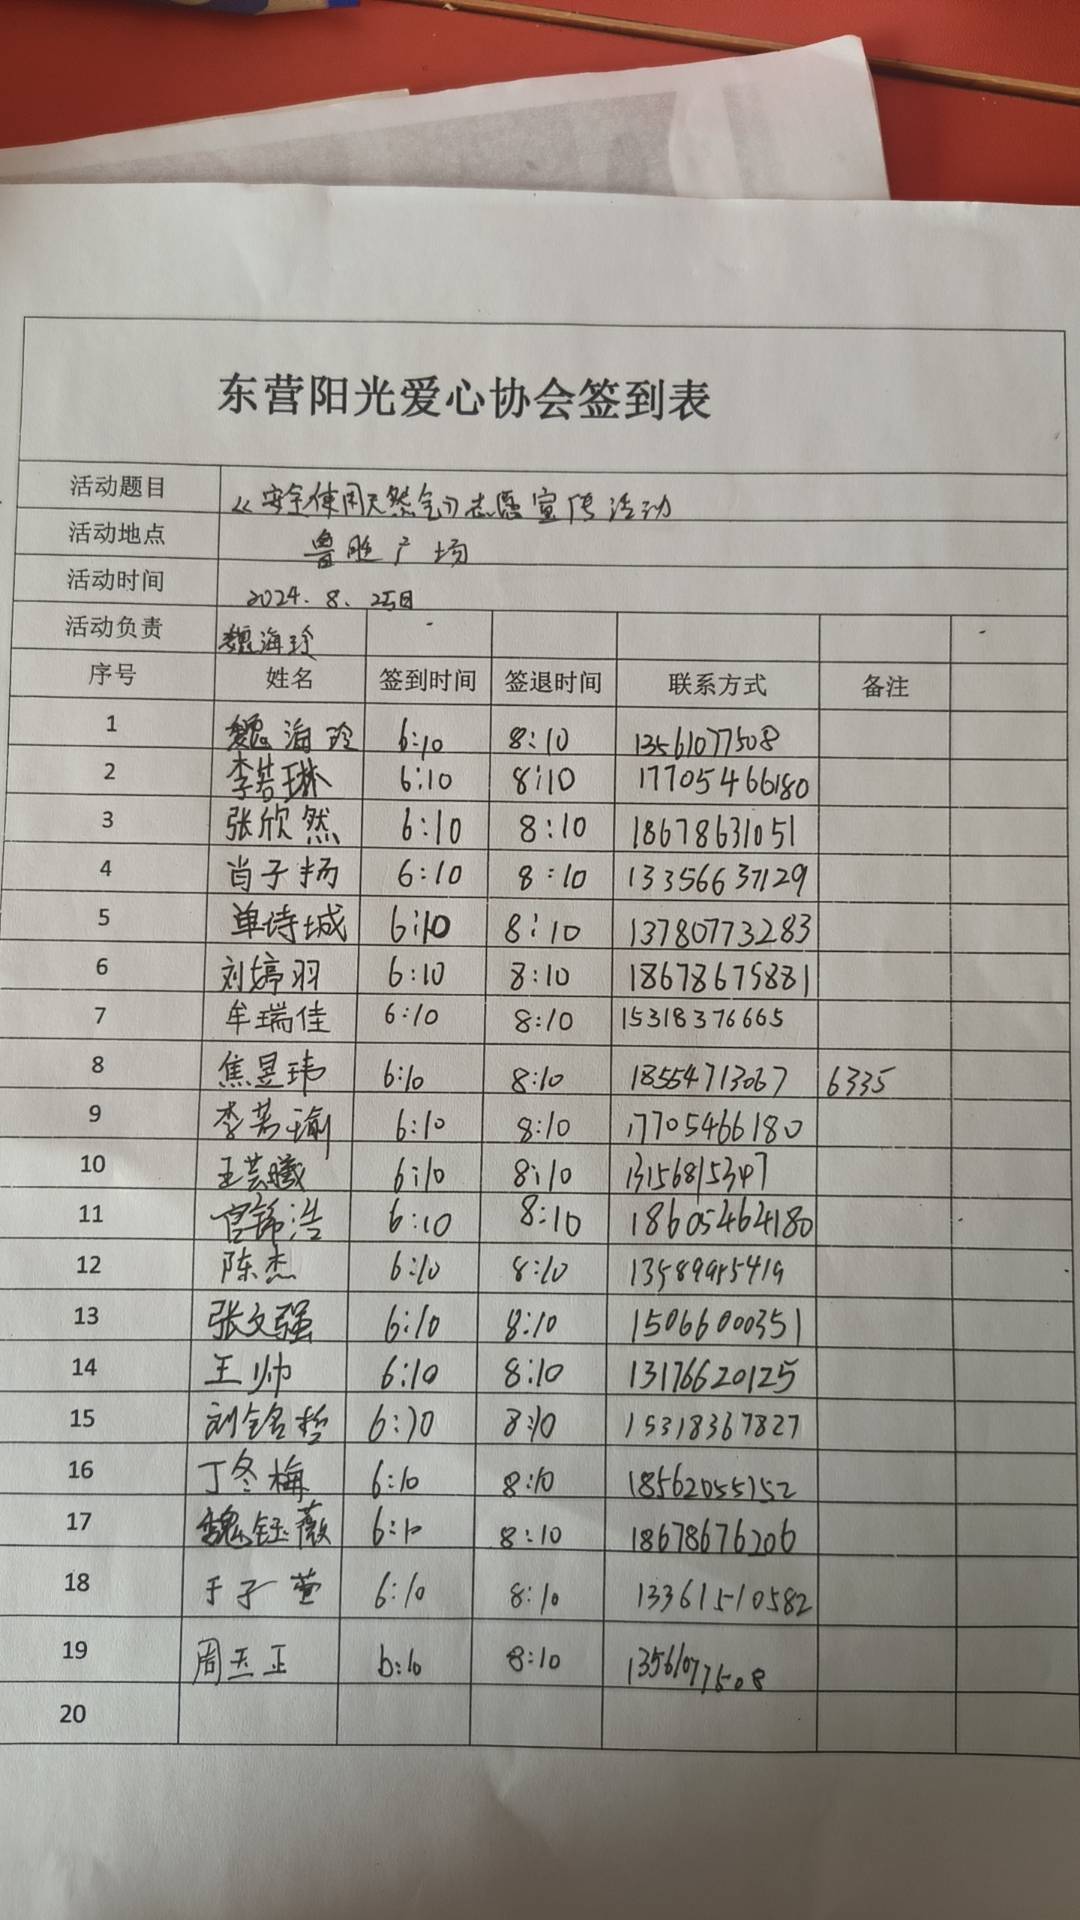 东营阳光爱心协会签到表
活动题目 《安全使用天然气》志愿宣传活动
活动地点 鲁胜广场
活动时间 2024.8.25日
活动负责 魏海玲
序号 姓名 签到时间 签退时间 联系方式 备注
1 魏海玲 6:10 8:10 13561077508
2 李若琳 6:10 8:10 17705466180
3 张欣然 6:10 8:10 18678631051
4 肖子扬 6:10 8:10 13356637129
5 单诗城 6:10 8:10 13780773283
6 刘婷羽 6:10 8:10 18678675881
7 牟瑞佳 6:10 8:10 15318376665
8 焦昱玮 6:10 8:10 18554713067 6335
9 李若瑜 6:10 8:10 17705466180
10 王芸曦 6:10 8:10 13156815347
11 官锦浩 6:10 8:10 18605464180
12 陈杰 6:10 8:10
13 张文强 6:10 8:10 15066000351
14 王帅 6:10 8:10 13176620125
15 刘铭哲 6:10 8:10 15318367827
16 丁冬梅 6:10 8:10 18562055152
17 魏钰薇 6:10 8:10 18678676206
18 于子萱 6:10 8:10 13361510582
19 周玉正 6:10 8:10 13561077508
20